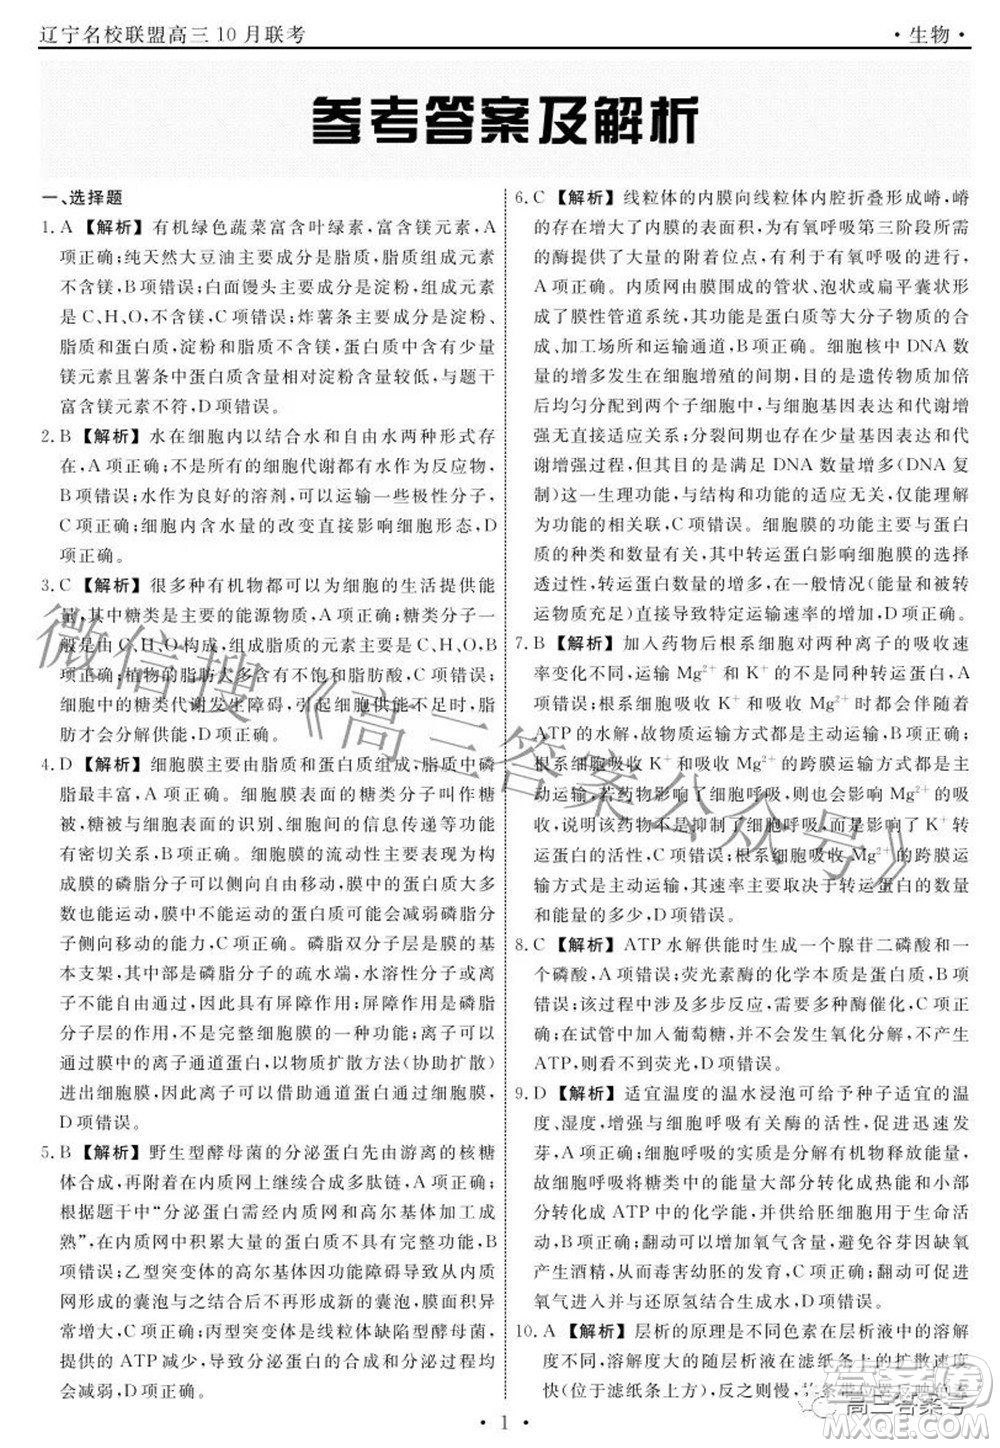 辽宁名校联盟高三10月联考
·生物·
参考答案及解析
一、选择题
1. A 【解析】有机绿色蔬菜富含叶绿素,富含镁元素,A
项正确;纯天然大豆油主要成分是脂质,组成元素不
含镁,B项错误;白面馒头主要成分是淀粉,组成元素
是C、H、O,不含镁,C项错误;炸薯条主要成分是淀粉、
脂质和蛋白质,淀粉和脂质不含镁,其中含有少量
镁元素且薯条中蛋白质含量相对淀粉含量较低,与题干
富含镁元素不符,D项错误。
2. B 【解析】水在细胞内以结合水和自由水两种形式存
在,A项正确;不是所有的细胞代谢都有水作为反应物,
B项错误;水作为良好的溶剂,可以运输一些极性分子,
C项正确;细胞内含水量的改变直接影响细胞形态,D
项正确。
3. C 【解析】很多种有机物都可以为细胞的生活提供能
量,其中糖类是主要的能源物质,A项正确;糖类分子一
般是由C、H、O构成,组成脂质的元素主要是C、H、O,B
项正确;植物的脂肪大多含有不饱和脂肪酸,C项错误;
细胞中的糖类代谢发生障碍,引起细胞供能不足时,脂
肪才会分解供能,D项正确。
4. D 【解析】细胞膜主要由脂质和蛋白质组成,脂质中磷
脂最丰富,A项正确。细胞膜表面的糖类分子叫作糖
被,糖被与细胞表面的识别、细胞间的信息传递等功能
有密切关系,B项正确。细胞膜的流动性主要表现为构
成膜的磷脂分子可以侧向自由移动,膜中的蛋白质大多
数也能运动,膜中不能运动的蛋白质可能会减弱磷脂分
子侧向移动的能力,C项正确。磷脂双分子层是膜的基
本支架,其内部是磷脂分子的疏水端,水溶性分子或离
子不能自由通过,因此具有屏障作用;屏障作用是磷脂
分子层的作用,不是完整细胞膜的一种功能;离子可以
通过膜中的离子通道蛋白,以物质扩散方法(协助扩散)
进出细胞膜,不可以借助通道蛋白质进出细胞膜,
D项错误。
5. B 【解析】野生型酵母菌的分泌蛋白先由游离的核糖
体合成,再转移至内质网上继续合成多肽链,A项错误;
根据题干中“分泌蛋白还需经内质网和高尔基体加工成
熟”,可知内质网中积累大量的蛋白质不具有完整功能,
B项正确;乙型突变体的高尔基体功能障碍导致从内质
网形成的囊泡与之结合后不再形成新的囊泡,膜面积
异常增大,C项错误;丙型突变体是线粒体缺陷型酵母菌,
产生的ATP减少,导致分泌蛋白的合成和分泌过程均
会减弱,D项错误。
6. C 【解析】线粒体的内膜向线粒体内腔折叠形成嵴,嵴
的存在增大了内膜的表面积,为有氧呼吸第三阶段所需
的酶提供了大量的附着位点,有利于有氧呼吸的进行,
A项正确。内质网由膜围成的管状、泡状或扁平囊状形
成了膜性管道系统,其功能是蛋白质等大分子物质的合
成、加工场所和运输通道,B项正确。细胞核中DNA数
量的增多发生在细胞增殖的间期,目的是遗传物质加倍
后均匀分配到两个子细胞中,与细胞基因表达和代谢增
强无直接适应关系;分裂间期中存在少量基因表达和代
谢增强过程,但目的是满足DNA数量增多(DNA复
制)这一生理功能,与结构和功能的适应无关,仅能理解
为功能的相关联,C项错误。细胞膜的功能主要与蛋白
质的种类和数量有关,其中转运蛋白影响细胞膜的选择
透过性,转运蛋白数量的增多,在一般情况(能量和被转
运物质充足)下直接导致特定运输速率的增加,D项正确。
7. B 【解析】加入药物后根系细胞对两种离子的吸收速
率变化不同,运输Mg²⁺和K⁺的不是同种转运蛋白,A
项错误。根系细胞吸收K⁺和吸收Mg²⁺都会发生
ATP的水解,故物质运输方式都是主动运输,B项正
确。细胞吸收K⁺和吸收Mg²⁺的跨膜运输方式都是主
动运输,都需要细胞呼吸供能,若药物不影响Mg²⁺的吸
收,说明该药物不是抑制了细胞呼吸,而是影响了K⁺转
运蛋白,C项错误。根系细胞吸收Mg²⁺的跨膜运输方
式是主动运输,其速率主要取决于转运蛋白的数量
和能量,D项错误。
8. C 【解析】ATP水解供能时生成一个腺苷二磷酸和
一个磷酸,A项错误;荧光素酶的化学本质是蛋白质,B项错
误;该过程中涉及多步反应,需要多种酶催化,C项正
确;在试管中加入葡萄糖,并不会发生氧化分解,不产生
ATP,则看不到荧光,D项错误。
9. D 【解析】适宜温度的温水浸泡可给予种子适宜的温
度、湿度,增强与细胞呼吸有关酶的活性,A项正确。细
胞呼吸的实质是细胞分解有机物释放能量,
故细胞呼吸将糖类中的大部分转化成热能和小部
分转化成ATP中的化学能,并供给胚细胞用于生命活动,
C项正确;翻动可以增加氧气含量,避免谷芽因缺氧
产生酒精,从而毒害幼胚的细胞,B项正确;翻动促进
氧气进入并与还原氢结合生成水,D项错误。
10. A 【解析】层析的原理是不同色素在层析液中的溶解
度不同,溶解度大的随层析液在滤纸条上的扩散速度
快(位于滤纸条上方)
·1·
微信搜《高三答案公众号》
高三答案号
MXQE.COM